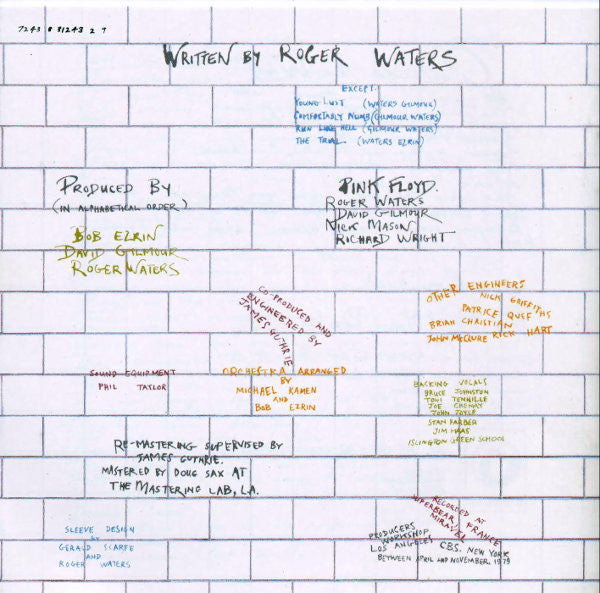 7243 8 31243 2 9
WRITTEN BY ROGER WATERS
EXCEPT
YOUNG LUST (WATERS GILMOUR)
COMFORTABLY NUMB (GILMOUR WATERS)
RUN LIKE HELL (GILMOUR WATERS)
THE TRIAL. (WATERS EZRIN)
PRODUCED BY
(IN ALPHABETICAL ORDER)
BOB EZRIN
DAVID GILMOUR
ROGER WATERS
PINK FLOYD.
ROGER WATERS
DAVID GILMOUR
NICK MASON
RICHARD WRIGHT
CO-PRODUCED AND
ENGINEERED BY
JAMES GUTHRIE
OTHER ENGINEERS
NICK GRIFFITHS
PATRICE QUEF
BRIAN CHRISTIAN
JOHN McCLURE RICK HART
SOUND EQUIPMENT
PHIL TAYLOR
ORCHESTRA ARRANGED
BY
MICHAEL KAMEN
AND
BOB EZRIN
BACKING VOCALS
BRUCE JOHNSTON
TONI TENNILLE
JOE CHEMAY
JOHN JOYCE
STAN FARBER
JIM HAAS
ISLINGTON GREEN SCHOOL
RE-MASTERING SUPERVISED BY
JAMES GUTHRIE.
MASTERED BY DOUG SAX AT
THE MASTERING LAB, L.A.
SLEEVE DESIGN
BY
GERALD SCARFE
AND
ROGER WATERS
RECORDED AT
SUPERBEAR, FRANCE
MIRAVEL
PRODUCERS
WORKSHOP
LOS ANGELES CBS. NEW YORK
BETWEEN APRIL AND NOVEMBER. 1979